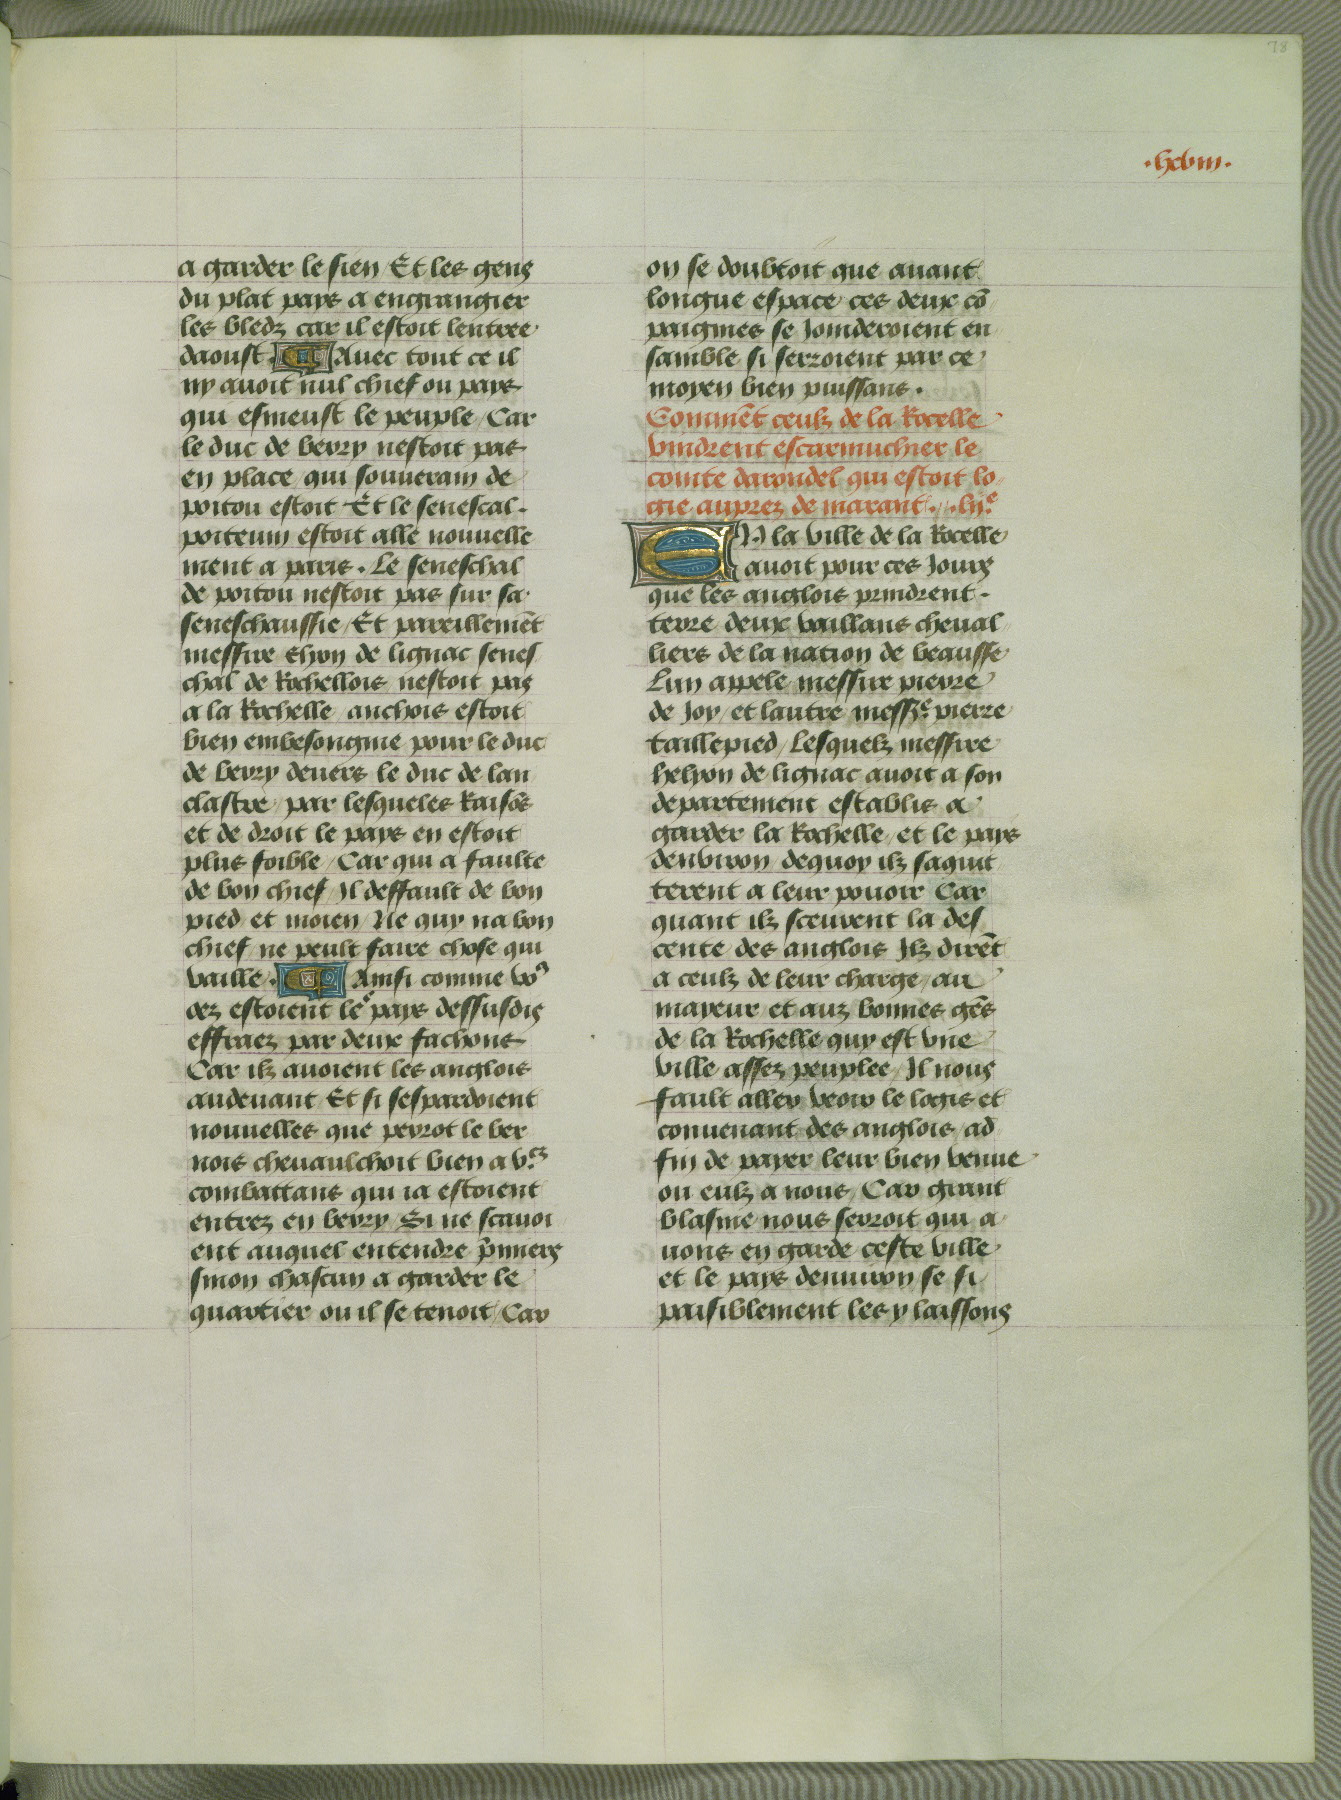 78
a garder le sien Et les gens
du plat pays a engrangier
les bledz car il estoit lentree
daoust. Avec tout ce il
ny auoit nul chief ou pays
qui esmeust le peuple / Car
le duc de berry nestoit pas
en place qui souuerain de
poitou estoit Et le senescal.
poiteuin estoit alle nouuelle
ment a paris. Le seneschal
de poitou nestoit pas sur sa
seneschaussie / Et pareillemēt
messire elyon de lignac senes
chal de Rochellois nestoit pas
a la Rochelle / anchois estoit
bien embesongnie pour le duc
de berry deuers le duc de lan
clastre / par lesqueles Raisōs
et de droit le pays en estoit
plus foible / Car qui a faulte
de bon chief / Il deffault de bon
pied et moien Ne quy na bon
chief ne peult faire chose qui
vaille. Ainsi comme vo9
oez estoient le pays dessusdis
effraez par deux fachons
Car ilz auoient les anglois
audeuant Et si sespardoient
nouuelles que peyrot le ber
nois cheuaulchoit bien a v.c
combattans qui ia estoient
entrez en berry Si ne scauoi
ent auquel entendre p̄miers
sinon chascun a garder le
quartier ou il se tenoit / Car
on se doubtoit que auant
longue espace ces deux cō
paignies se Joinderoient en
samble si serroient par ce
moyen bien puissans.
Commēt ceulz de la Rocelle
vindrent escarmuchier le
comte darondel qui estoit lo
gie auprez de marant. .liij.e
EN la ville de la Rocelle
auoit pour ces Jours
que les anglois prindrent.
terre deux vaillans cheual
liers de la nation de beausse
Lun appele messire pierre
de Joy / et lautre messr̄e pierre
taillepied / Lesquelz messire
helyon de lignac auoit a son
departement establis a
garder la Rochelle / et le pays
denviron dequoy ilz saquit
terent a leur pouoir Car
quant ilz sceurent la des
cente des anglois Ilz dirēt
a ceulz de leur charge / au
mayeur et auz bonnes gēs
de la Rochelle quy est vne
ville assez peuplee / Il nous
fault aller veoir le logis et
conuenant des anglois / ad
fin de payer leur bien venue
ou eulz a nous / Car grant
blasme nous serroit qui a
uons en garde ceste ville
et le pays denuiron se si
paisiblement les y laissons